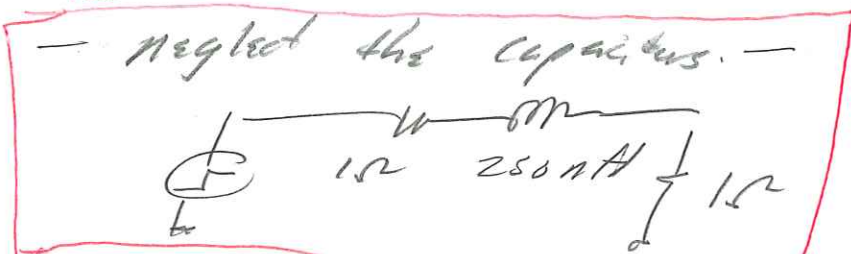 — neglect the capacitors. —
1Ω 250nH 1Ω